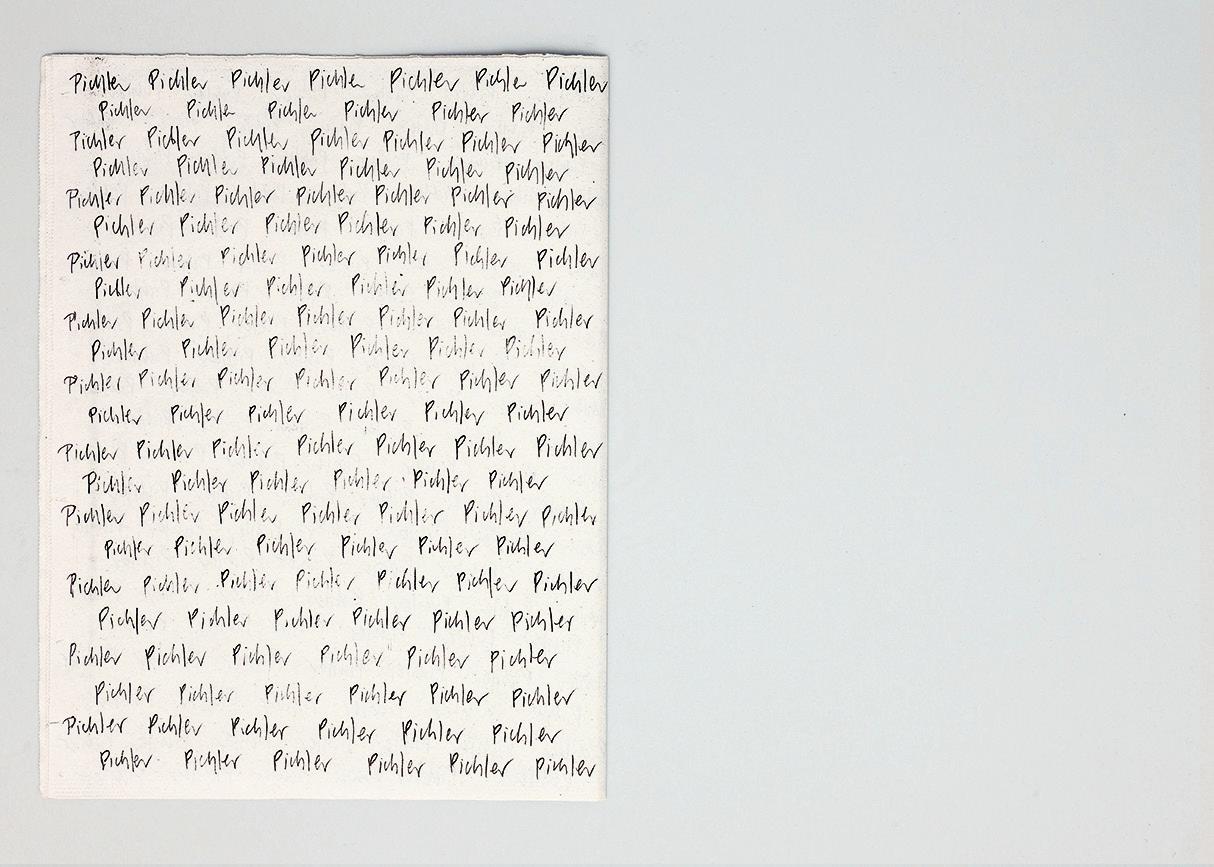 Pichler Pichler Pichler Pichler Pichler Pichler Pichler
Pichler Pichler Pichler Pichler Pichler Pichler
Pichler Pichler Pichler Pichler Pichler Pichler Pichler
Pichler Pichler Pichler Pichler Pichler Pichler
Pichler Pichler Pichler Pichler Pichler Pichler Pichler
Pichler Pichler Pichler Pichler Pichler Pichler
Pichler Pichler Pichler Pichler Pichler Pichler Pichler
Pichler Pichler Pichler Pichler Pichler Pichler
Pichler Pichler Pichler Pichler Pichler Pichler Pichler
Pichler Pichler Pichler Pichler Pichler Pichler
Pichler Pichler Pichler Pichler Pichler Pichler Pichler
Pichler Pichler Pichler Pichler Pichler Pichler
Pichler Pichler Pichler Pichler Pichler Pichler Pichler
Pichler Pichler Pichler Pichler Pichler Pichler
Pichler Pichler Pichler Pichler Pichler Pichler Pichler
Pichler Pichler Pichler Pichler Pichler Pichler
Pichler Pichler Pichler Pichler Pichler Pichler Pichler
Pichler Pichler Pichler Pichler Pichler Pichler
Pichler Pichler Pichler Pichler Pichler Pichler
Pichler Pichler Pichler Pichler Pichler Pichler
Pichler Pichler Pichler Pichler Pichler Pichler
Pichler Pichler Pichler Pichler Pichler Pichler